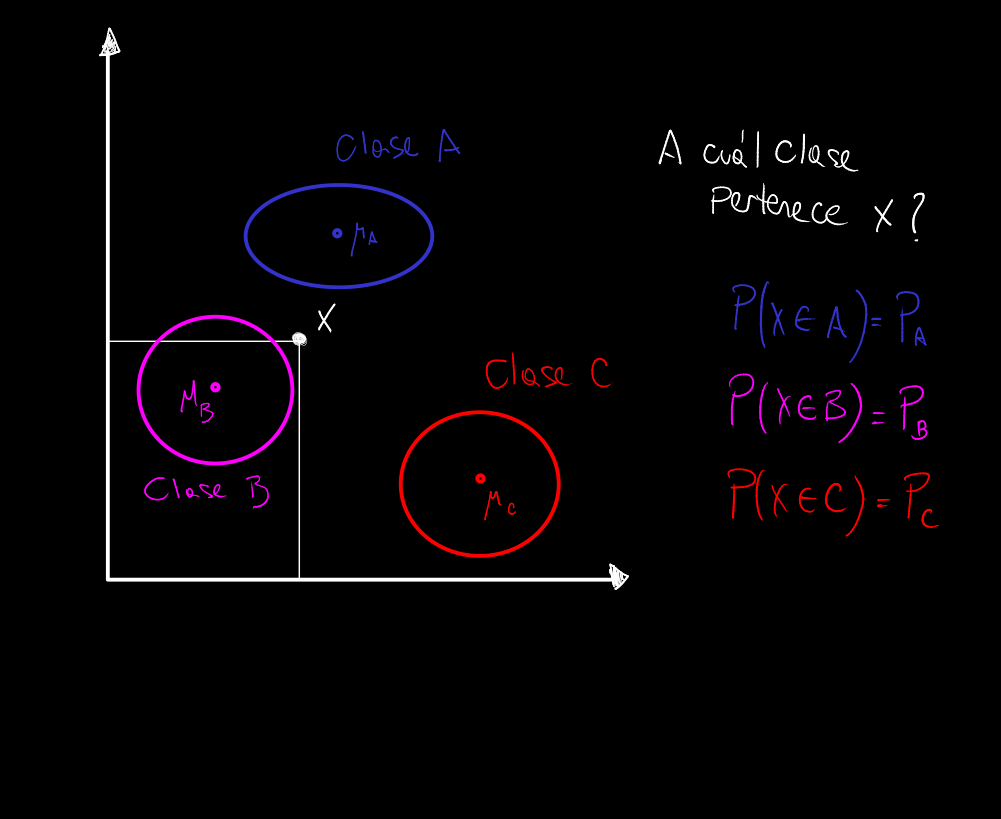 Clase A
μA
X
μB
Clase B
Clase C
μC
A cuál Clase
Pertenece X?
P(X∈A)=PA
P(X∈B)=PB
P(X∈C)=PC